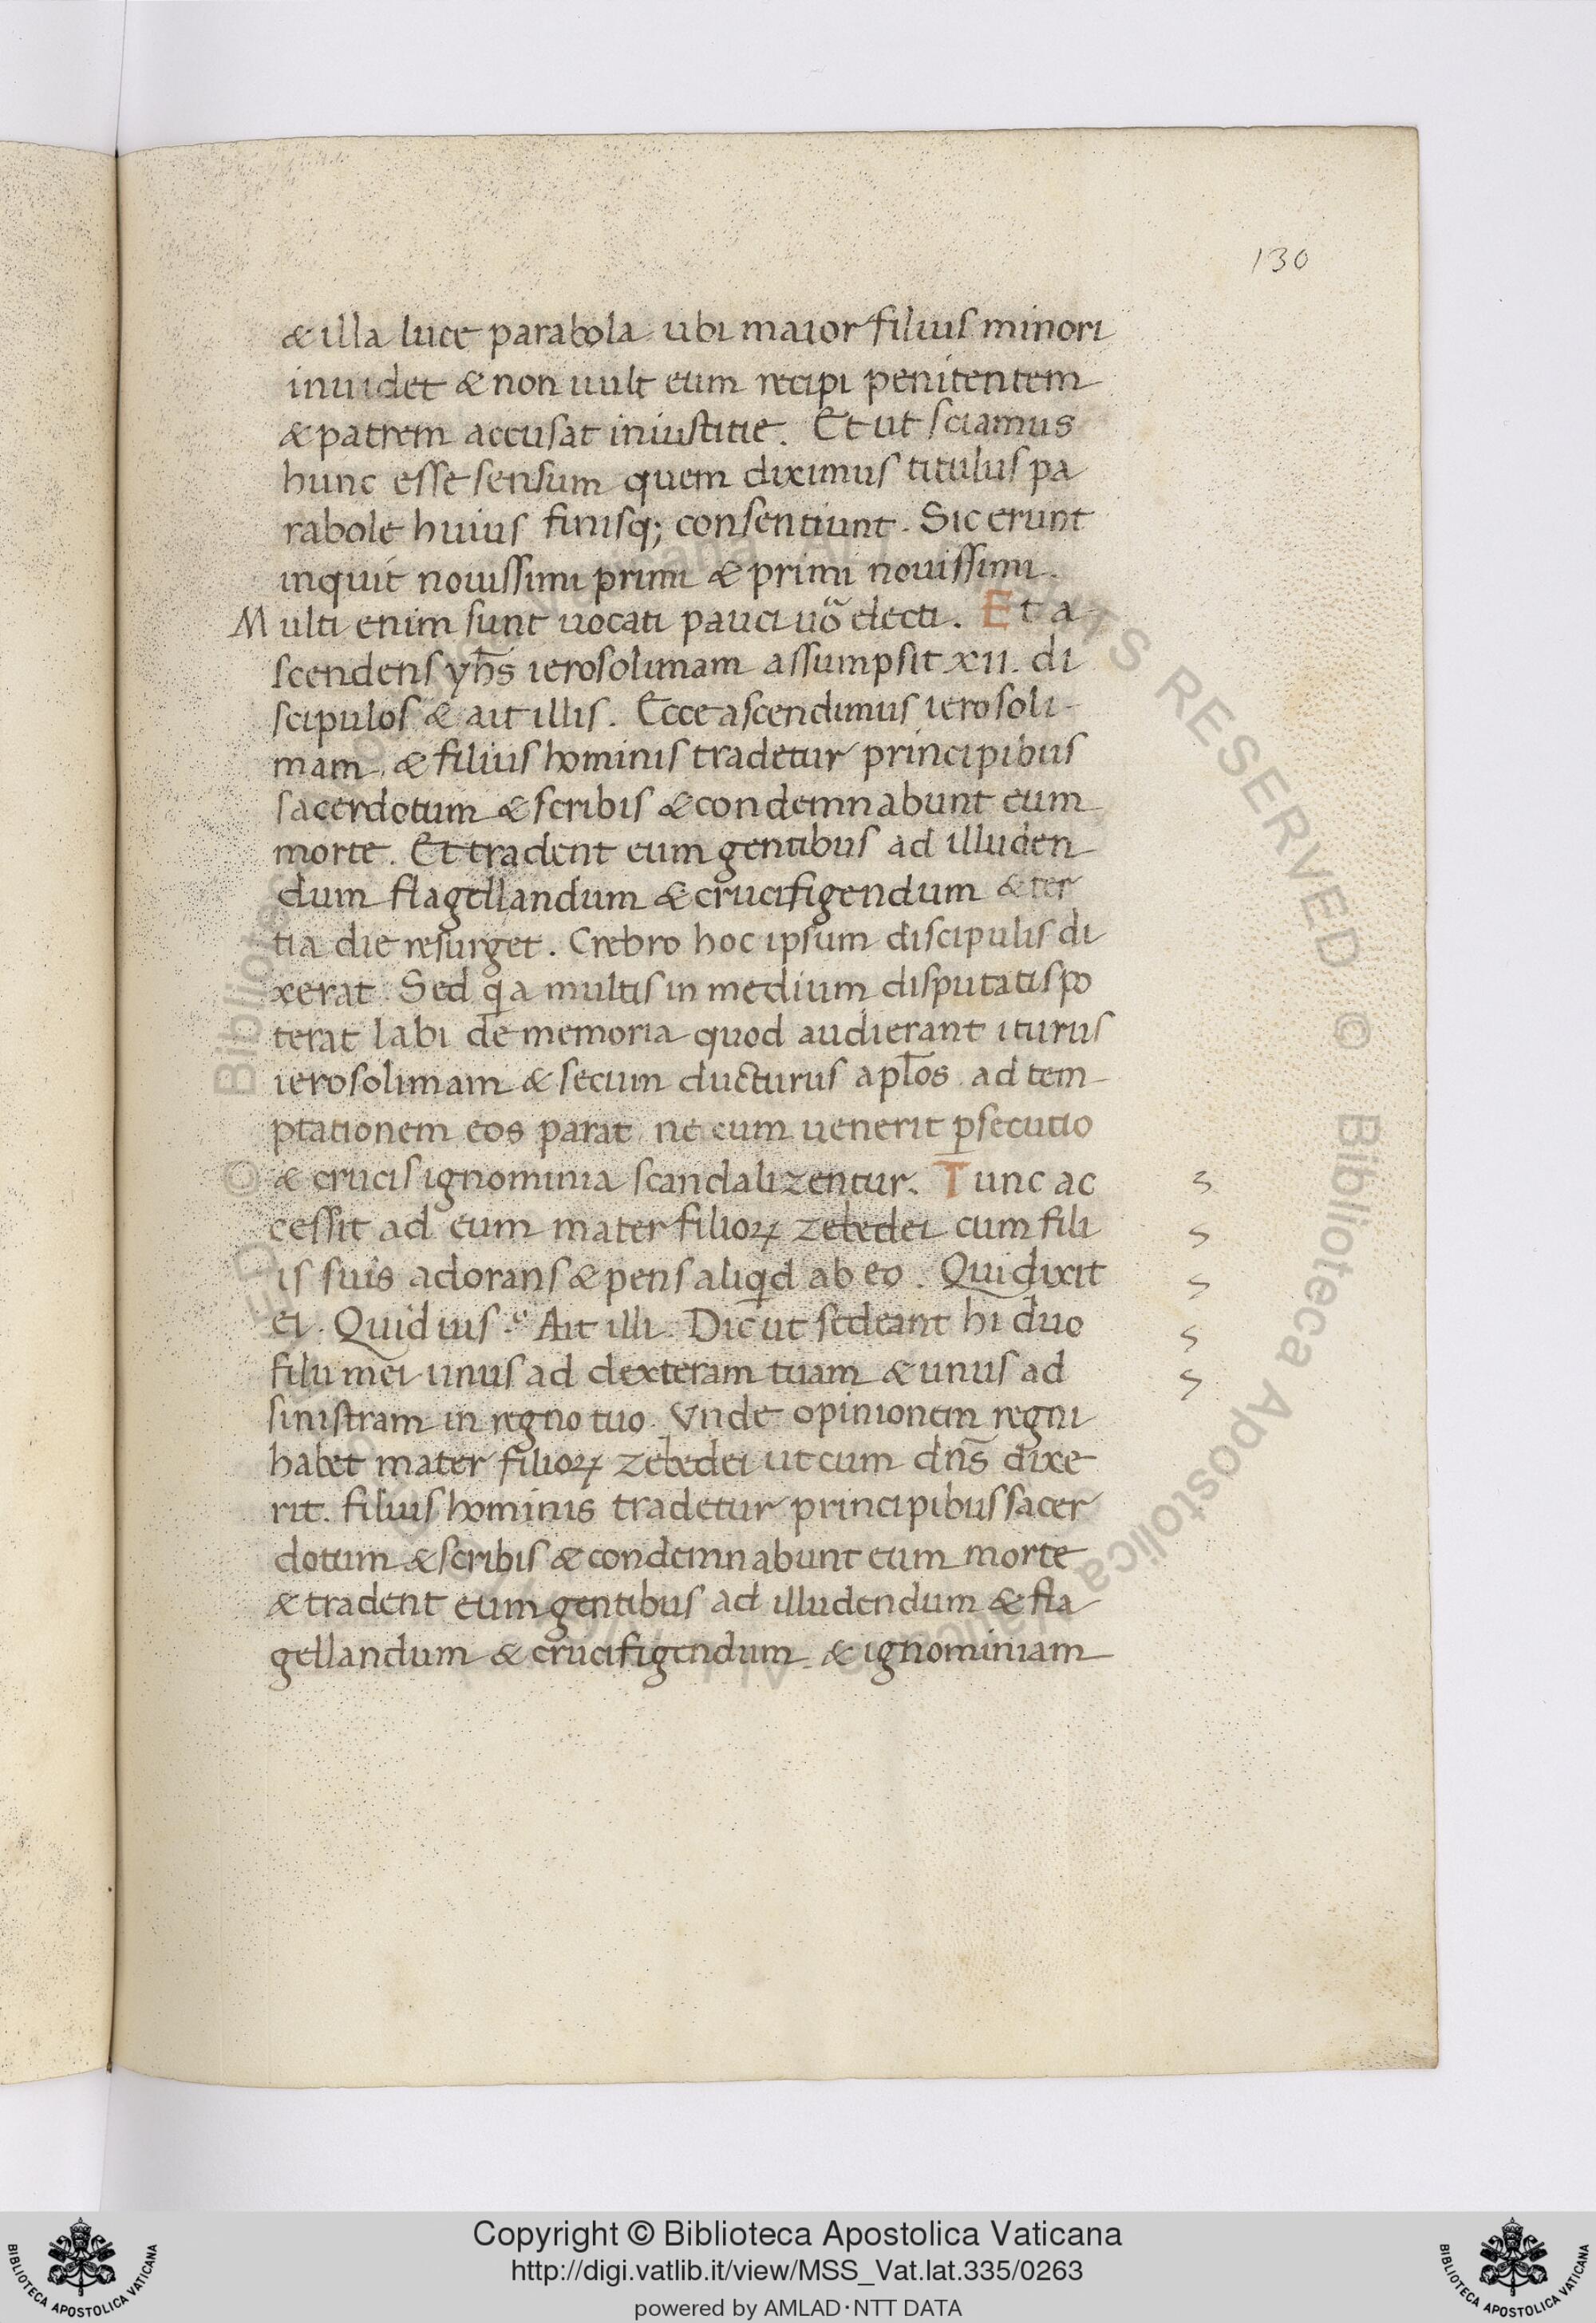 130
& illa luce parabola ubi maior filius minori
inuidet & non uult eum recipi penitentem
& patrem accusat iniustitie. Et ut sciamus
hunc esse sensum quem diximus titulus pa
rabole huius finisq; consentiunt. Sic erunt
inquit nouissimi primi & primi nouissimi.
Multi enim sunt uocati pauci uo᷑ electi. Et a-
scendens yh̅s ierosolimam assumpsit xii. di
scipulos & ait illis. Ecce ascendimus ierosoli-
mam, & filius hominis tradetur principibus
sacerdotum & scribis & condemnabunt eum
morte. Et tradent eum gentibus ad illuden
dum flagellandum & crucifigendum & ter
tia die resurget. Crebro hoc ipsum discipulis di
xerat. Sed q̇a multis in medium disputatis po
terat labi de memoria quod audierant iturus
ierosolimam & secum ducturus apl̅os ad tem-
ptationem eos parat, ne cum uenerit ꝑsecutio
& crucis ignominia scandalizentur. Tunc ac
cessit ad eum mater filioꝝ zebedei cum fili
is suis adorans & pens aliq̇d ab eo. Qui dixit
ei. Quid uis? Ait illi. Dic ut sedeant hi duo
filii mei unus ad dexteram tuam & unus ad
sinistram in regno tuo. Vnde opinionem regni
habet mater filioꝝ zebedei ut cum dn̅s dixe
rit. filius hominis tradetur principibus sacer
dotum & scribis & condemnabunt eum morte
& tradent eum gentibus ad illudendum & fla
gellandum & crucifigendum. & ignominiam
Copyright © Biblioteca Apostolica Vaticana
http://digi.vatlib.it/view/MSS_Vat.lat.335/0263
powered by AMLAD·NTT DATA
BIBLIOTECA APOSTOLICA VATICANA
BIBLIOTECA APOSTOLICA VATICANA